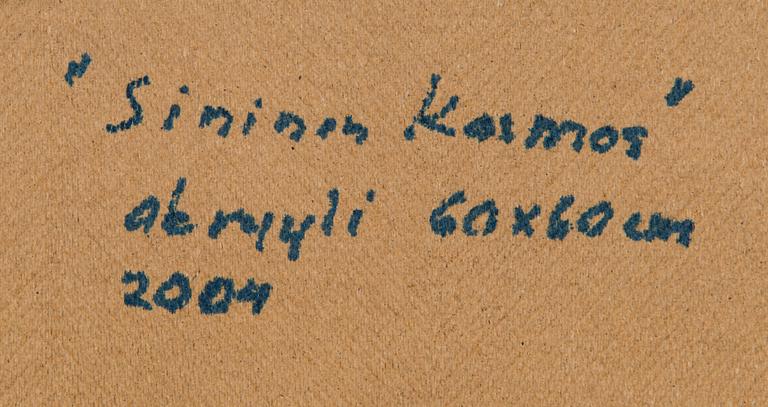 "Sininen Kosmos"
akryyli 60x60cm
2004